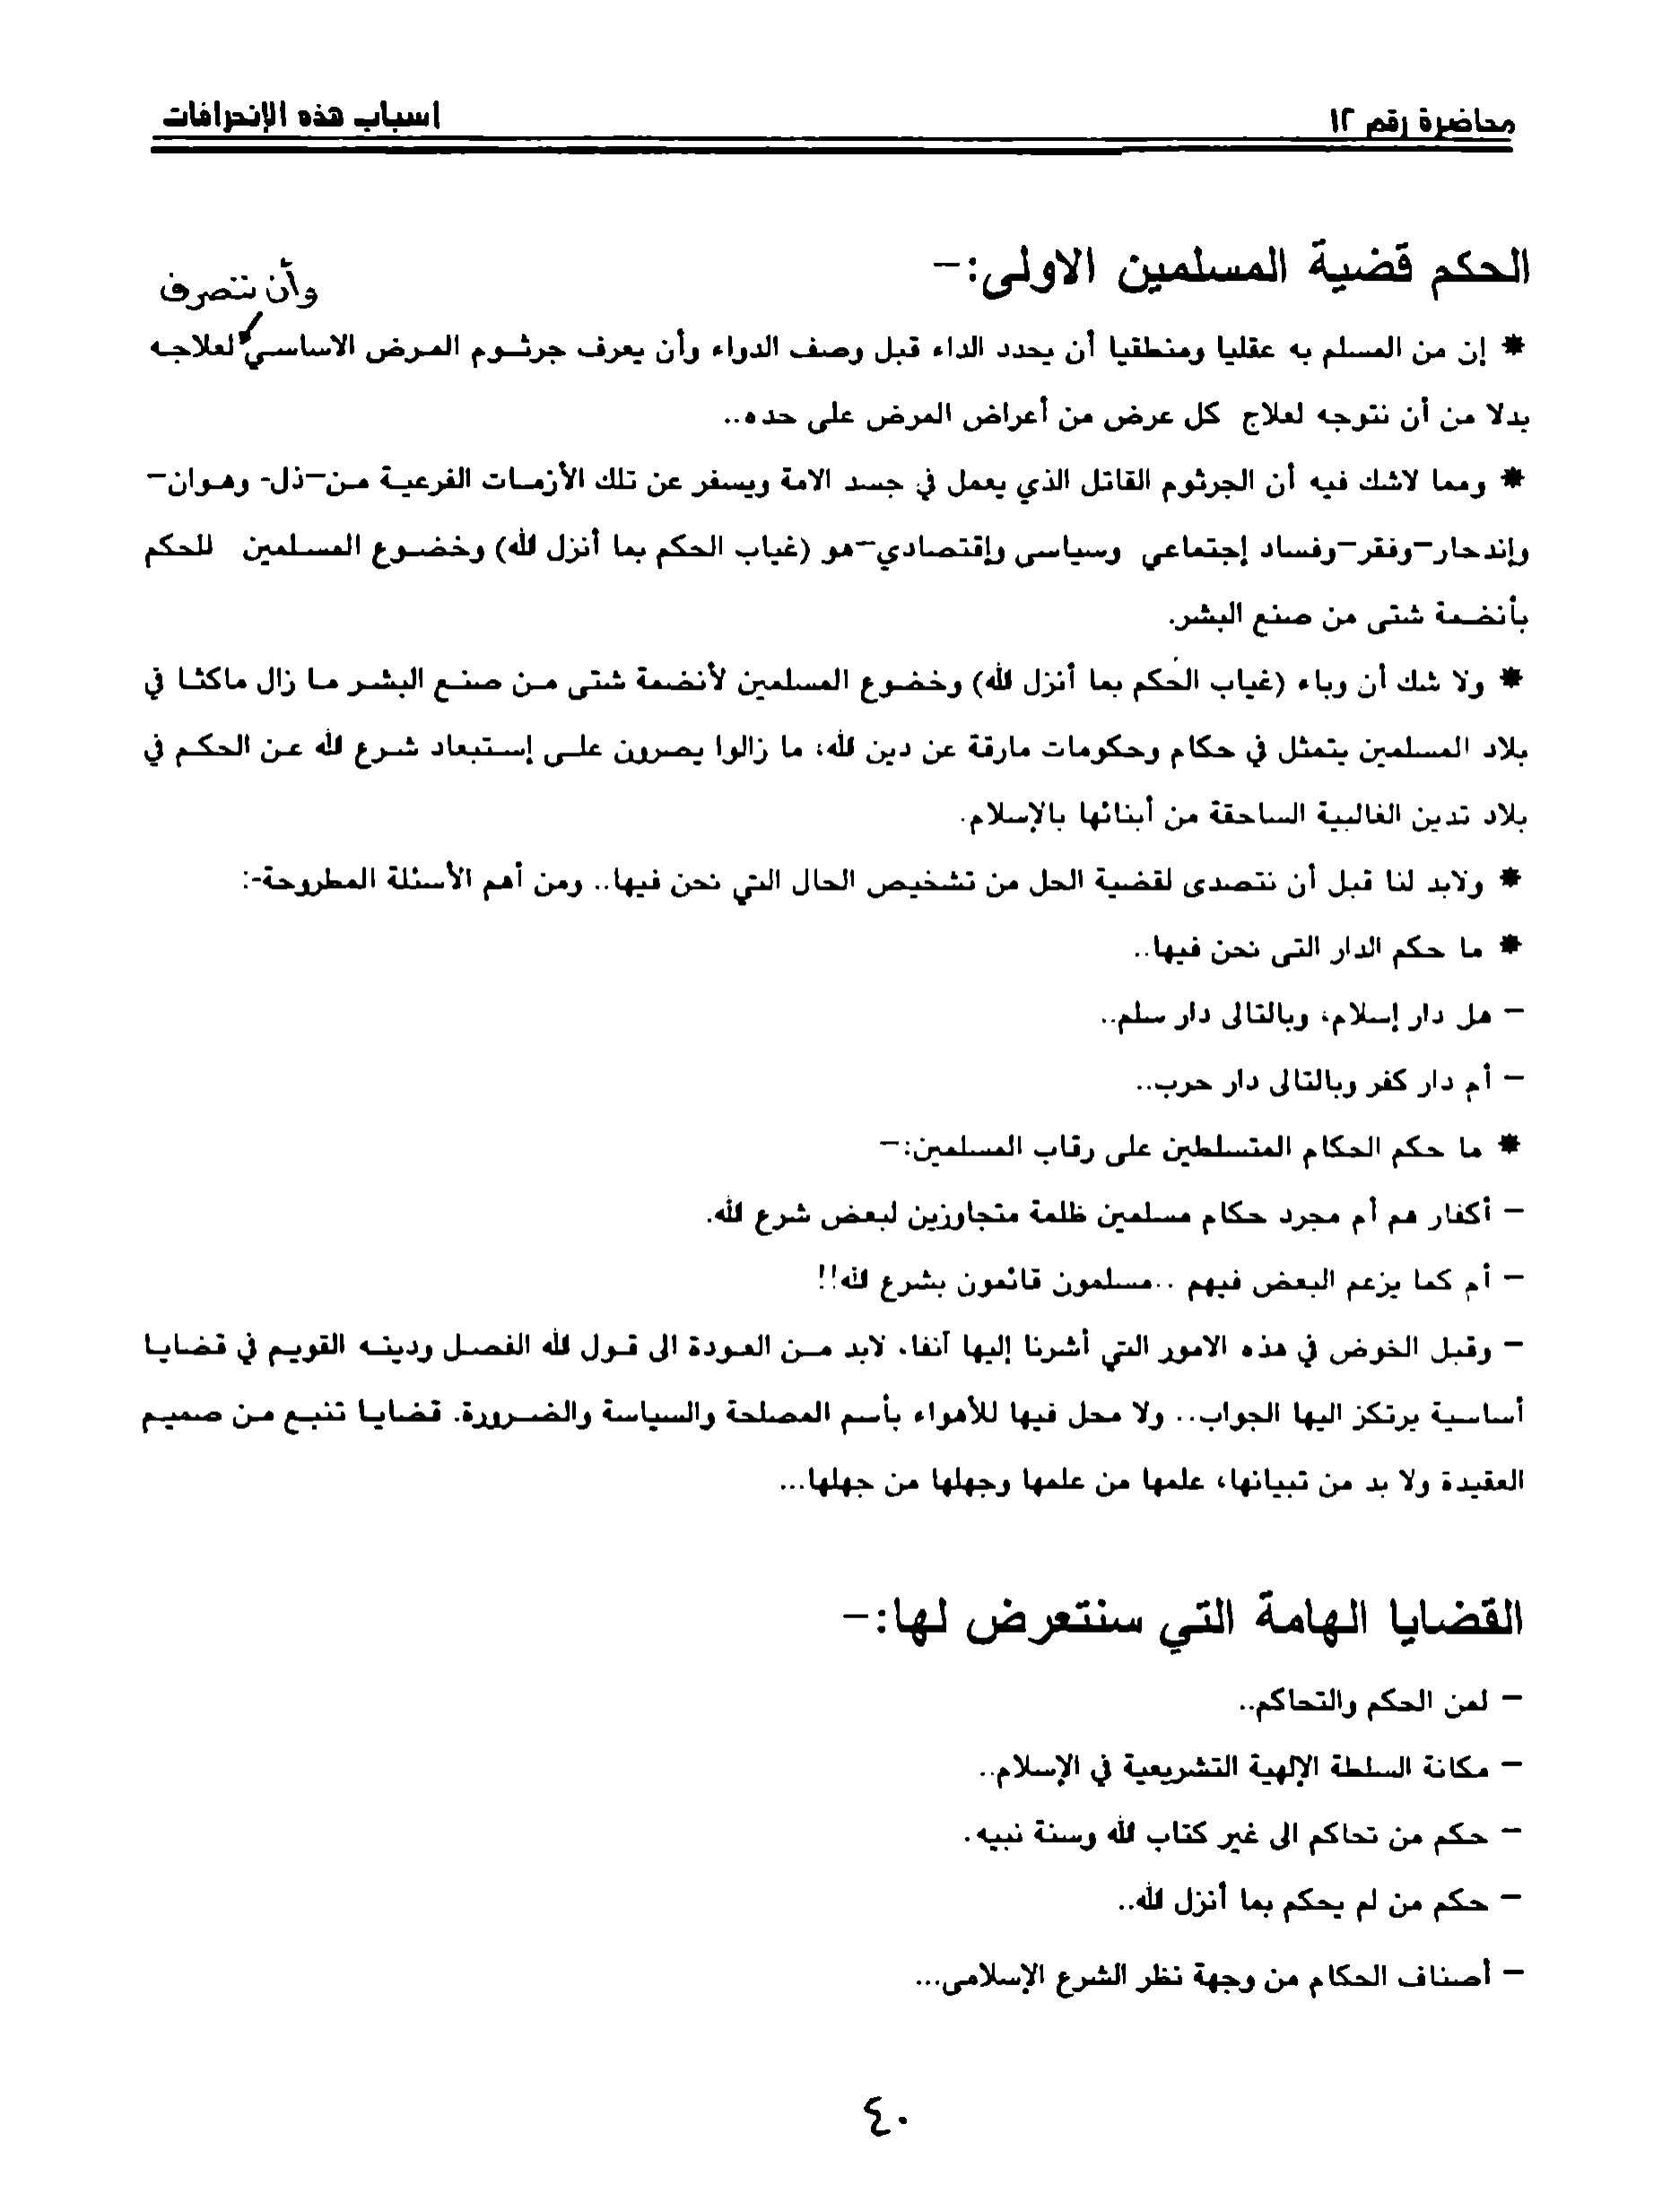 محاضرة رقم ١٢
اسباب هذه الإنحرافات
الحكم قضية المسلمين الاولى:-
وأن نتصرف
* إن من المسلم به عقليا ومنطقيا أن يحدد الداء قبل وصف الدواء وأن يعرف جرثوم المرض الاساسي لعلاجه
بدلا من أن نتوجه لعلاج كل عرض من أعراض المرض على حده..
* ومما لاشك فيه أن الجرثوم القاتل الذي يعمل في جسد الامة ويسفر عن تلك الأزمات الفرعية من-ذل- وهوان-
وإندحار-وفقر-وفساد إجتماعي وسياسى وإقتصادي-هو (غياب الحكم بما أنزل الله) وخضوع المسلمين للحكم
بأنضمة شتى من صنع البشر.
* ولا شك أن وباء (غياب الحكم بما أنزل الله) وخضوع المسلمين لأنضمة شتى من صنع البشر ما زال ماكثا في
بلاد المسلمين يتمثل في حكام وحكومات مارقة عن دين الله، ما زالوا يصرون على إستبعاد شرع الله عن الحكم في
بلاد تدين الغالبية الساحقة من أبنائها بالإسلام.
* ولابد لنا قبل أن نتصدى لقضية الحل من تشخيص الحال التي نحن فيها.. ومن أهم الأسئلة المطروحة-:
* ما حكم الدار التى نحن فيها..
- هل دار إسلام، وبالتالى دار سلم..
- أم دار كفر وبالتالى دار حرب..
* ما حكم الحكام المتسلطين على رقاب المسلمين:-
- أكفار هم أم مجرد حكام مسلمين ظلمة متجاوزين لبعض شرع الله.
- أم كما يزعم البعض فيهم ..مسلمون قائمون بشرع الله!!
- وقبل الخوض في هذه الامور التي أشرنا إليها آنفا، لابد من العودة الى قول الله الفصل ودينه القويم في قضايا
أساسية يرتكز اليها الجواب.. ولا محل فيها للأهواء بأسم المصلحة والسياسة والضرورة. قضايا تنبع من صميم
العقيدة ولا بد من تبيانها، علمها من علمها وجهلها من جهلها...
القضايا الهامة التي سنتعرض لها:-
- لمن الحكم والتحاكم..
- مكانة السلطة الإلهية التشريعية في الإسلام..
- حكم من تحاكم الى غير كتاب الله وسنة نبيه.
- حكم من لم يحكم بما أنزل الله..
- أصناف الحكام من وجهة نظر الشرع الإسلامى...
٤٠